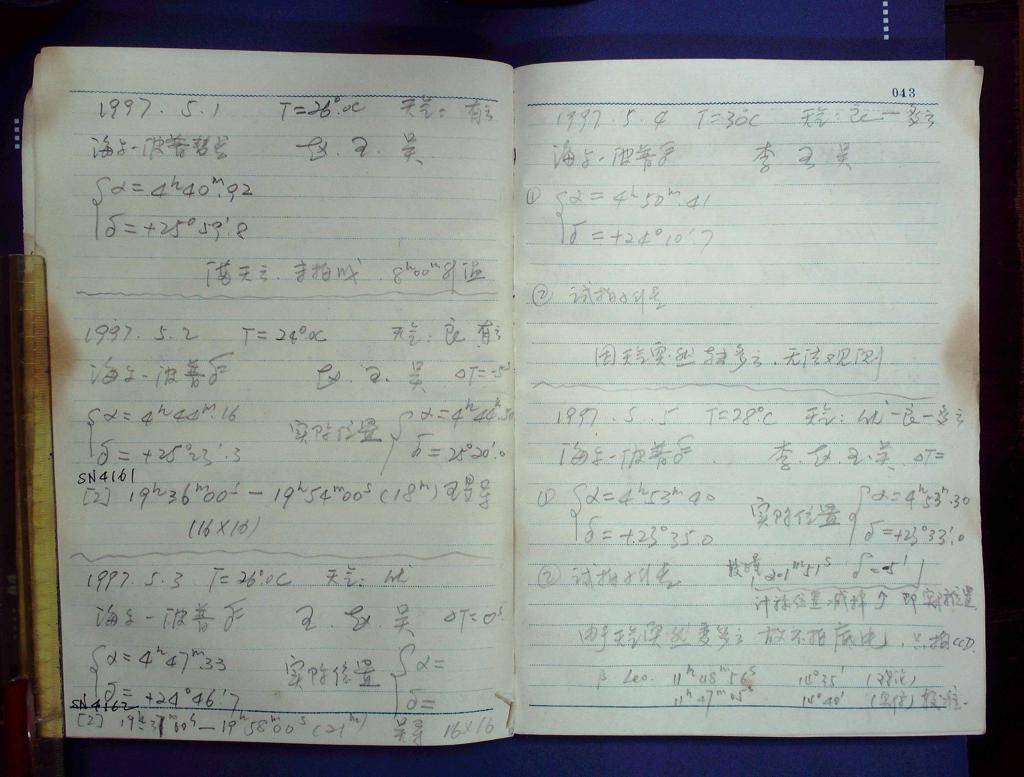 1997. 5. 1 T=26°.0C 天气: 有云
海尔-波普彗星 赵. 王. 吴
α=4h40m.92
δ=+25°59'.8
满天云. 未拍成 8h00m
1997. 5. 2 T=24°.0C 天气: 良 有云
海尔-波普 赵. 王. 吴 ΔT=-5s
α=4h44m.16 实际位置 α=4h44m.50
δ=+25°23'.3 δ=25°20'.0
SN4161
[2] 19h36m00s — 19h54m00s (18m) 吴导
(16×16)
1997. 5. 3 T=26°.0C 天气: 优
海尔-波普 王 赵 吴 ΔT=0s
α=4h47m.33 实际位置 α=
δ=+24°46'.7 δ=
SN4162
[2] 19h37m00s — 19h58m00s (21m) 吴导 16×16
043
1997. 5. 4 T=30°C 天气: 良—多云
海尔-波普 李 王 吴
① α=4h50m.41
δ=+24°10'.7
② 试拍
因天气突然转多云. 无法观测
1997. 5. 5 T=28°C 天气: 优-良-多云
海尔-波普 李. 赵. 王. 吴 ΔT=
① α=4h53m40 实际位置 α=4h53m.30
δ=+23°35.0 δ=+23°33'.0
② 试拍 δ=-5'
计标位置 减掉 ↑ 即实际位置
由于天气突然变多云 故不拍底片, 只拍CCD.
β Leo. 11h48m56s 14°35' (理论)
11h47m05s 14°40' (实际) 校准.